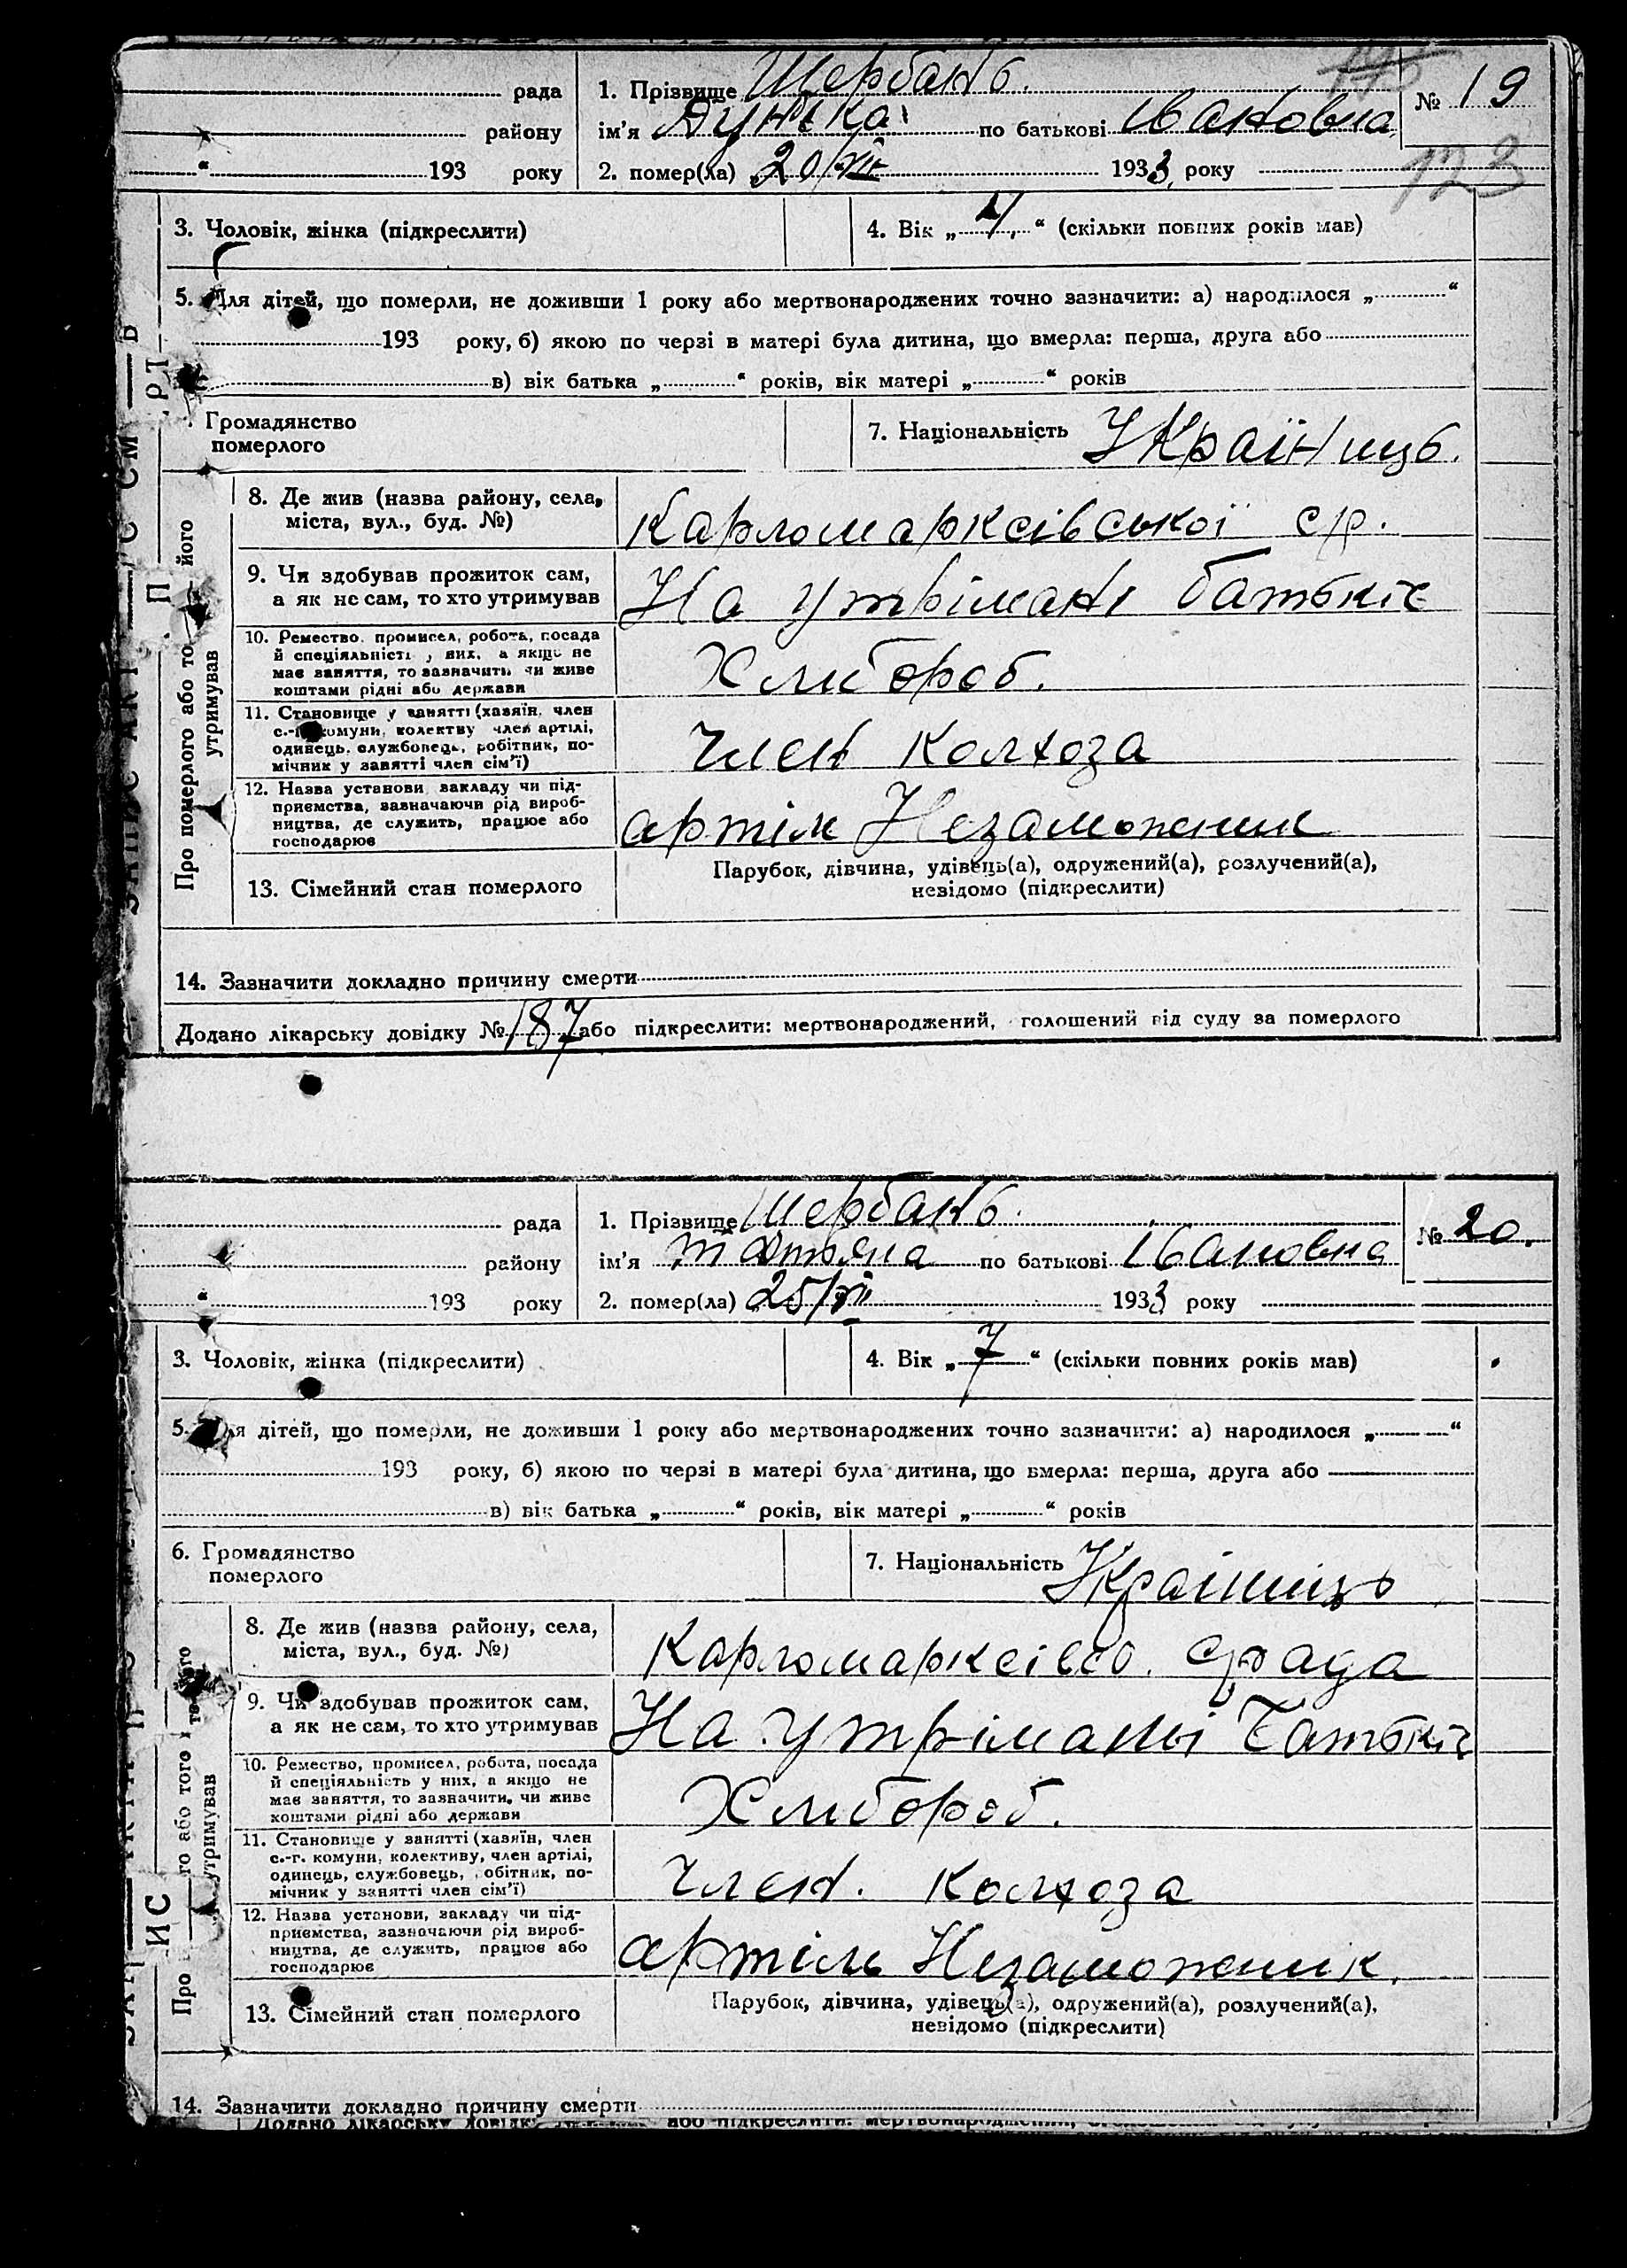 рада
району
“ 193 року
1. Прізвище Щербань.
ім’я Дунька по батькові Івановна
2. помер(ла) „20/VII 1933 року
№ 19
123
3. Чоловік, жінка (підкреслити)
4. Вік „ “ (скільки повних років мав)
5. Для дітей, що померли, не доживши 1 року або мертвонароджених точно зазначити: а) народилося „ “
193 року, б) якою по черзі в матері була дитина, що вмерла: перша, друга або
в) вік батька „ “ років, вік матері „ “ років
Громадянство
померлого
7. Національність Українць.
Про померлого або то його
утримував
8. Де жив (назва району, села,
міста, вул., буд. №)
Карломарксівської с/р.
9. Чи здобував прожиток сам,
а як не сам, то хто утримував
На утрімані батьків
10. Ремество, промисел, робота, посада
й спеціяльність у них, а якщо не
має заняття, то зазначить чи живе
коштами рідні або держави
Хлибороб.
11. Становище у занятті (хазяїн, член
с.-г. комуни, колективу член артілі,
одинець, службовець, робітник, по-
мічник у занятті член сім’ї)
член колхоза
12. Назва установи закладу чи під-
приємства, зазначаючи рід вироб-
ництва, де служить, працює або
господарює
артіль Незаможник
13. Сімейний стан померлого
Парубок, дівчина, удівець(а), одружений(а), розлучений(а),
невідомо (підкреслити)
14. Зазначити докладно причину смерти
Додано лікарську довідку № 187 або підкреслити: мертвонароджений, голошений від суду за померлого
рада
району
“ 193 року
1. Прізвище Щербань.
ім’я Татьяна по батькові Івановна
2. помер(ла) „25/VII 1933 року
№ 20.
3. Чоловік, жінка (підкреслити)
4. Вік „7“ (скільки повних років мав)
5. Для дітей, що померли, не доживши 1 року або мертвонароджених точно зазначити: а) народилося „ “
193 року, б) якою по черзі в матері була дитина, що вмерла: перша, друга або
в) вік батька „ “ років, вік матері „ “ років
6. Громадянство
померлого
7. Національність Українць
Про го або того
утримував
8. Де жив (назва району, села,
міста, вул., буд. №)
Карломарксівсь. с/рада
9. Чи здобував прожиток сам,
а як не сам, то хто утримував
На утріманні батьків
10. Ремество, промисел, робота, посада
й спеціяльність у них, а якщо не
має заняття, то зазначити, чи живе
коштами рідні або держави
Хлибороб.
11. Становище у занятті (хазяїн, член
с.-г. комуни, колективу, член артілі,
одинець, службовець, обітник, по-
мічник у занятті член сім’ї)
член. колхоза
12. Назва установи, закладу чи під-
приємства, зазначаючи рід вироб-
ництва, де служить, працює або
господарює
артіль Незаможник.
13. Сімейний стан померлого
Парубок, дівчина, удівець(а), одружений(а), розлучений(а),
невідомо (підкреслити)
14. Зазначити докладно причину смерти
Додано лікарську довідку або підкреслити: мертвонароджений,